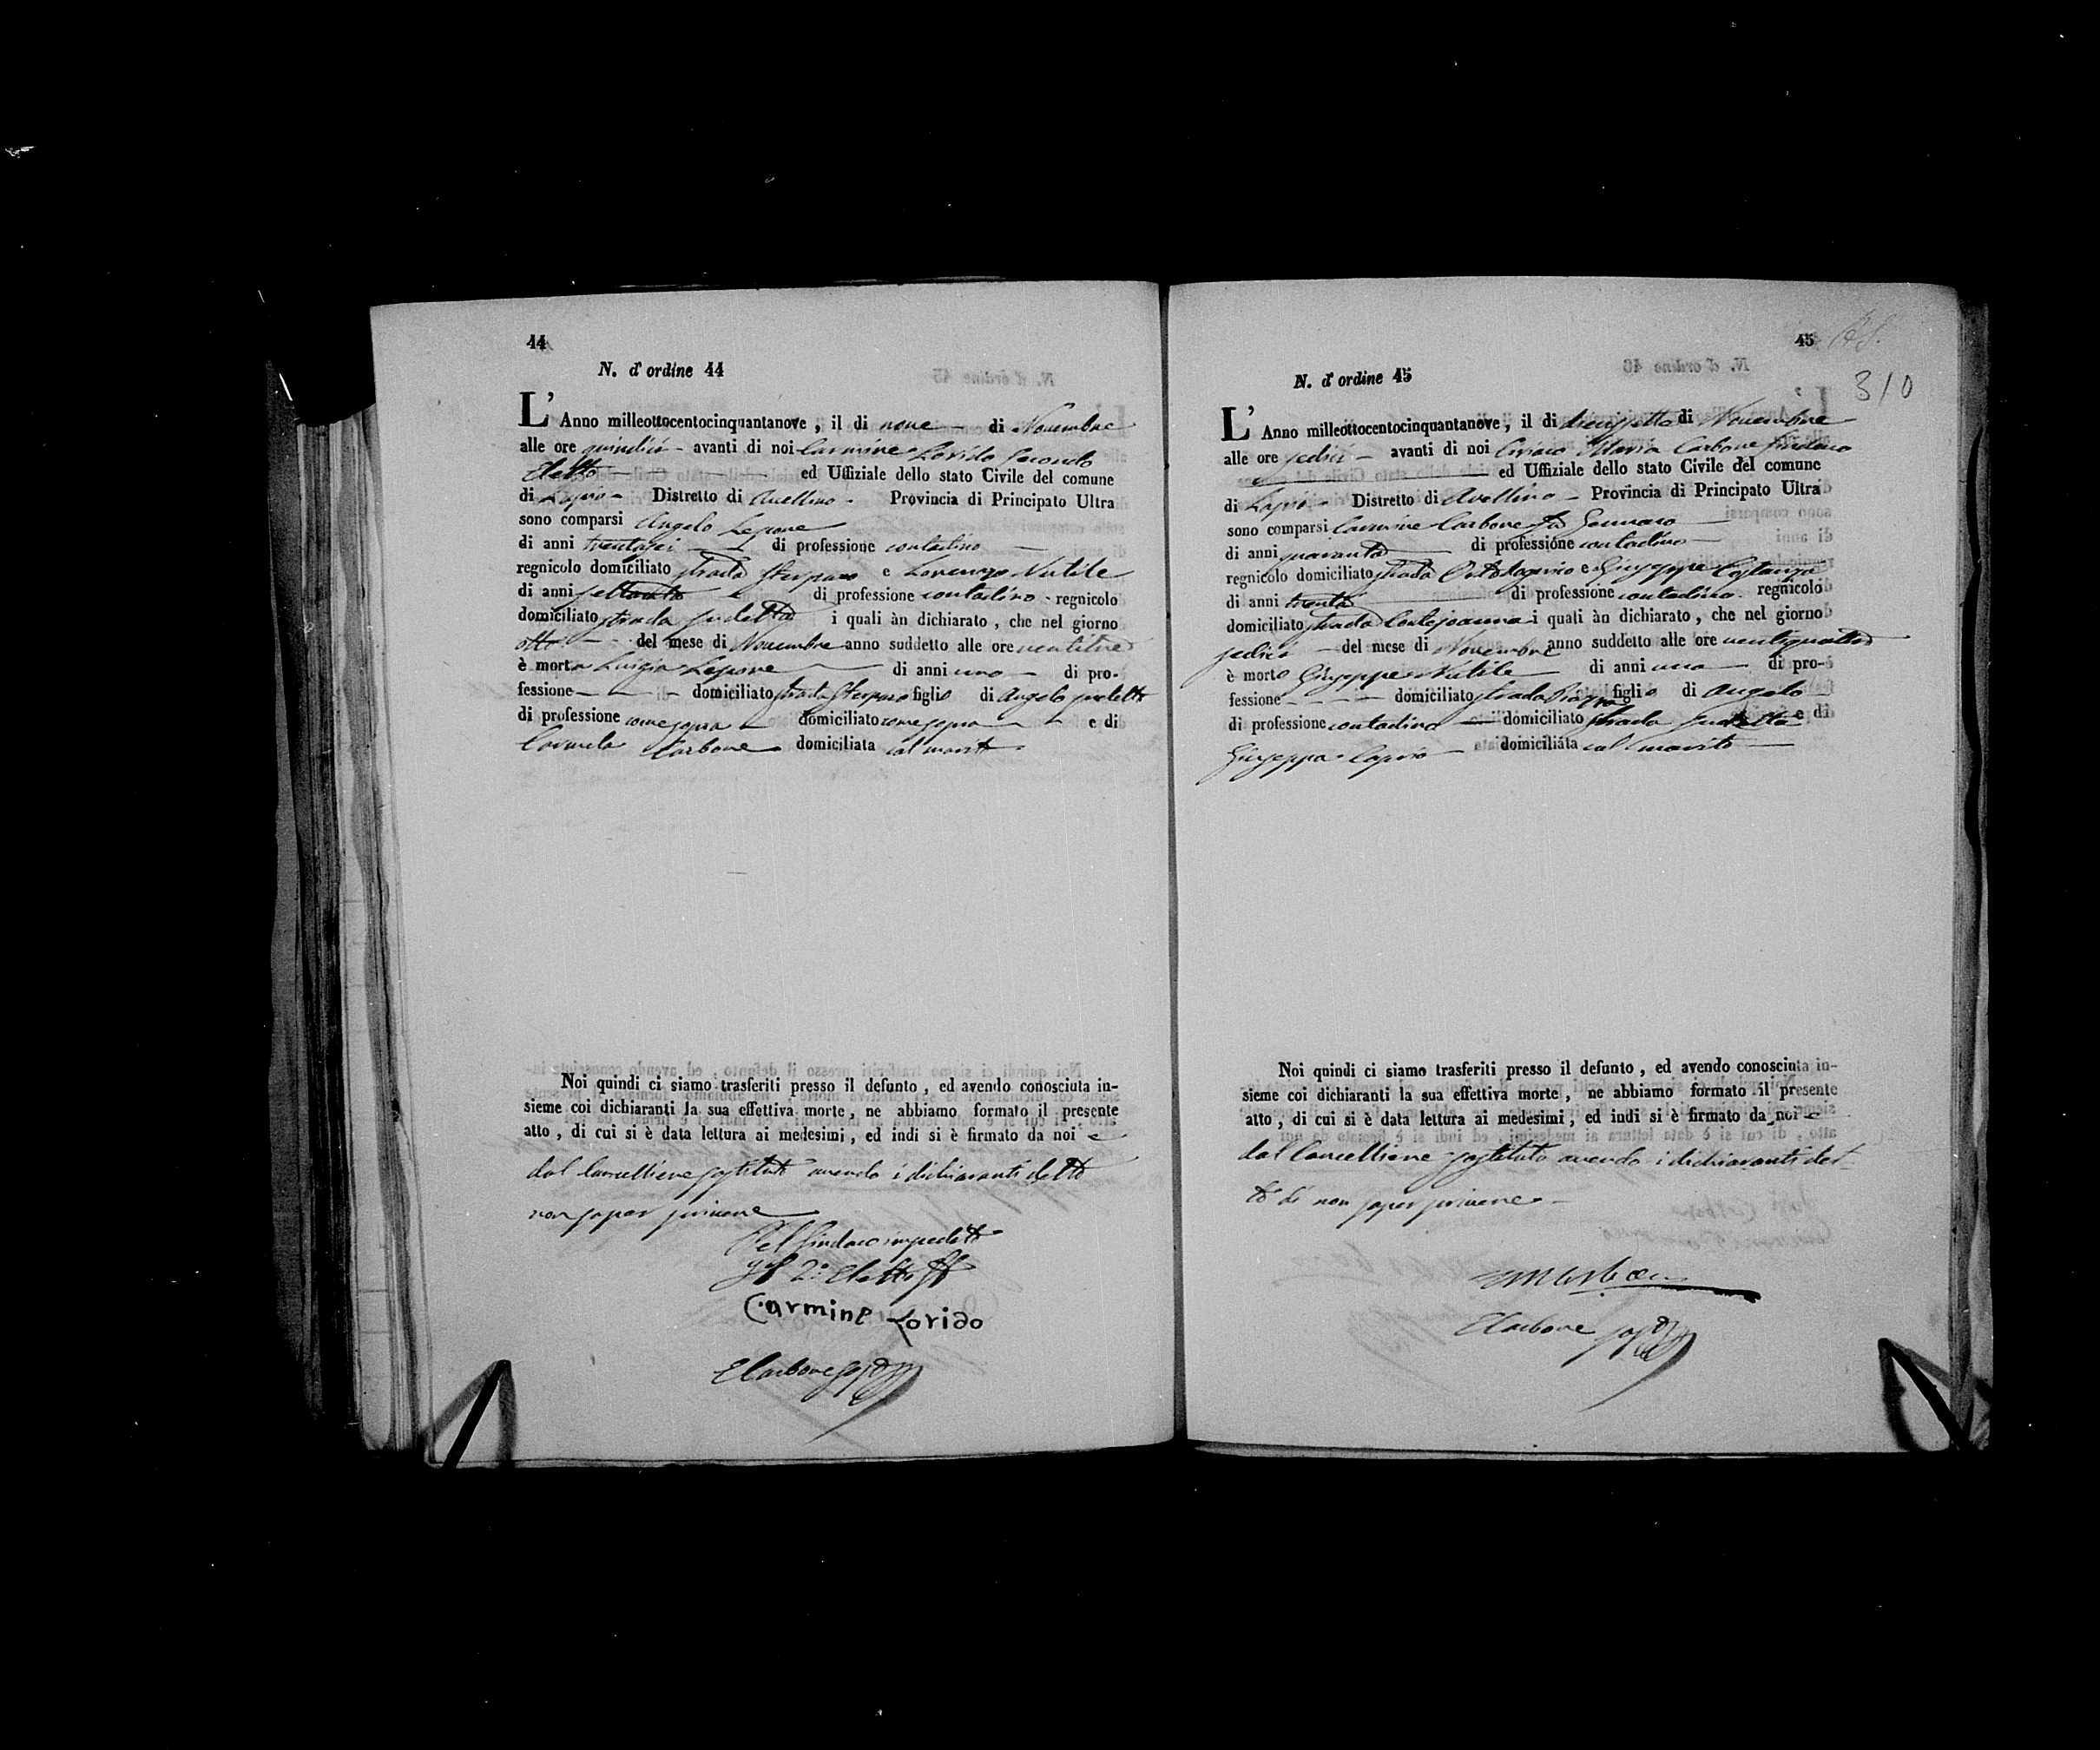 44
N. d'ordine 44
L'Anno milleottocentocinquantanove, il di nove di Novembre
alle ore quindici avanti di noi Carmine Lorido secondo
Eletto ed Uffiziale dello stato Civile del comune
di Lapio Distretto di Avellino Provincia di Principato Ultra
sono comparsi Angelo Lepore
di anni trentasei di professione contadino
regnicolo domiciliato strada e Lorenzo Nutile
di anni di professione contadino regnicolo
domiciliato strada sudetta i quali àn dichiarato, che nel giorno
otto del mese di Novembre anno suddetto alle ore ventitre
è morta Luigia Lepore di anni uno di pro-
fessione domiciliato strada figlio di Angelo sudetto
di professione come sopra domiciliato come sopra e di
Carmela Carbone domiciliata col marito
Noi quindi ci siamo trasferiti presso il defunto, ed avendo conosciuta in-
sieme coi dichiaranti la sua effettiva morte, ne abbiamo formato il presente
atto, di cui si è data lettura ai medesimi, ed indi si è firmato da noi e
dal Cancelliere sostituto avendo i dichiaranti detto
non saper scrivere
Pel Sindaco impedito
Il 2° Eletto ff
Carmine Lorido
Carbone
45
310
N. d'ordine 45
L'Anno milleottocentocinquantanove, il di diecissette di Novembre
alle ore sedici avanti di noi Ciriaco Maria Carbone Sindaco
ed Uffiziale dello stato Civile del comune
di Lapio Distretto di Avellino Provincia di Principato Ultra
sono comparsi Carmine Carbone fu Gennaro
di anni quaranta di professione contadino
regnicolo domiciliato strada e Giuseppe Costanza
di anni trenta di professione contadino regnicolo
domiciliato strada i quali àn dichiarato, che nel giorno
sedici del mese di Novembre anno suddetto alle ore ventiquattro
è morto Giuseppe Nutile di anni uno di pro-
fessione domiciliato strada figlio di Angelo
di professione contadino domiciliato strada sudetta e di
Giuseppa Caprio domiciliata col marito
Noi quindi ci siamo trasferiti presso il defunto, ed avendo conosciuta in-
sieme coi dichiaranti la sua effettiva morte, ne abbiamo formato il presente
atto, di cui si è data lettura ai medesimi, ed indi si è firmato da noi e
dal Cancelliere sostituto avendo i dichiaranti det-
to di non saper scrivere
Carbone